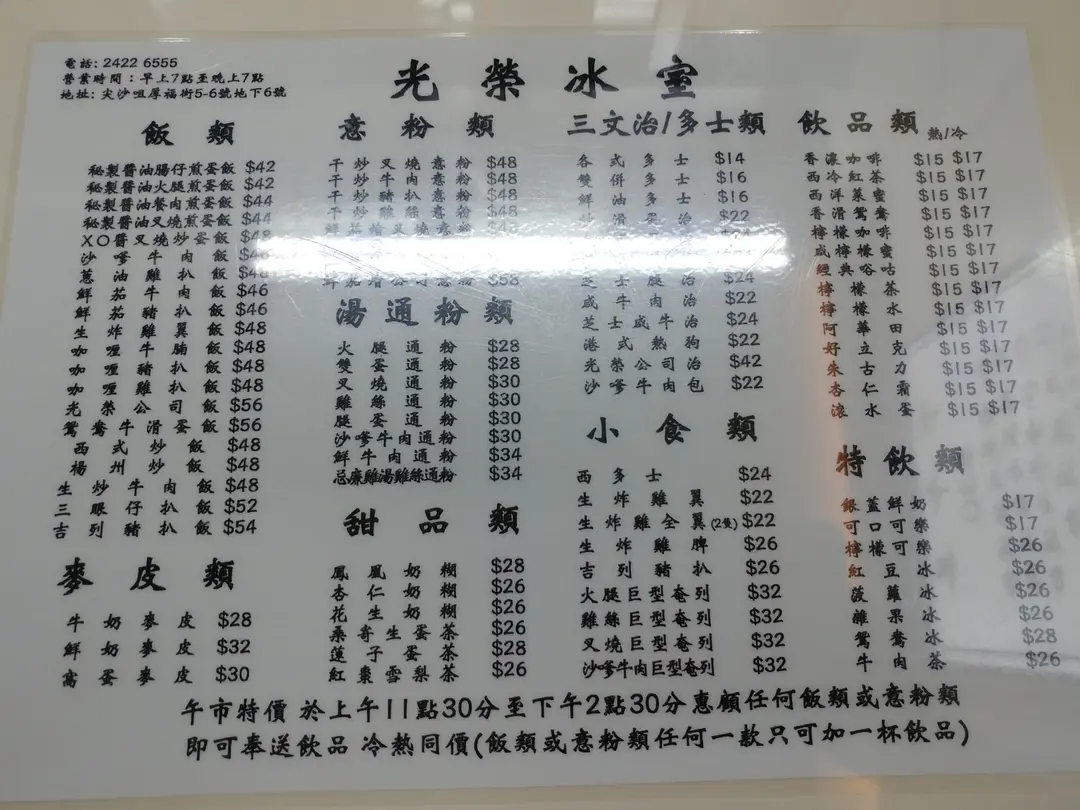 電話: 2422 6555
營業時間：早上7點至晚上7點
地址: 尖沙咀厚福街5-6號地下6號
光榮冰室
飯類
秘製醬油腸仔煎蛋飯 $42
秘製醬油火腿煎蛋飯 $42
秘製醬油餐肉煎蛋飯 $44
秘製醬油叉燒煎蛋飯 $44
XO醬叉燒炒蛋飯 $48
沙嗲牛肉飯
蔥油雞扒飯
鮮茄牛肉飯 $46
鮮茄豬扒飯 $46
生炸雞翼飯 $48
咖喱牛腩飯 $48
咖喱豬扒飯 $48
咖喱雞扒飯 $48
光榮公司飯 $56
鴛鴦牛滑蛋飯 $56
西式炒飯 $48
楊州炒飯 $48
生炒牛肉飯 $48
三眼仔扒飯 $52
吉列豬扒飯 $54
麥皮類
牛奶麥皮 $28
鮮奶麥皮 $32
窩蛋麥皮 $30
意粉類
干炒叉燒意粉 $48
干炒牛肉意粉 $48
干炒豬扒意粉 $48
干炒雞絲意粉 $48
鮮茄燴公司意粉 $58
湯通粉類
火腿通粉 $28
雙蛋通粉 $28
叉燒通粉 $30
雞絲通粉 $30
腿蛋通粉 $30
沙嗲牛肉通粉 $30
鮮牛肉通粉 $34
忌廉雞湯雞絲通粉 $34
甜品類
鳳凰奶糊 $28
杏仁奶糊 $26
花生奶糊 $26
桑寄生蛋茶 $26
蓮子蛋茶 $28
紅棗雪梨茶 $26
三文治/多士類
各式多士 $14
雙併多士 $16
鮮油多士 $16
炒滑蛋治 $22
芝士腿治 $24
咸牛肉治 $22
芝士咸牛治 $24
港式熱狗 $22
光榮公司治 $42
沙嗲牛肉包 $22
小食類
西多士 $24
生炸雞翼 $22
生炸雞全翼(2隻) $22
生炸雞脾 $26
吉列豬扒 $26
火腿巨型奄列 $32
雞絲巨型奄列 $32
叉燒巨型奄列 $32
沙嗲牛肉巨型奄列 $32
飲品類 熱/冷
香濃咖啡 $15 $17
西冷紅茶 $15 $17
西洋菜蜜 $15 $17
香滑鴛鴦 $15 $17
檸檬咖啡 $15 $17
咸檸檬蜜 $15 $17
經典唂咕 $15 $17
檸檬茶 $15 $17
檸檬水 $15 $17
阿華田 $15 $17
好立克 $15 $17
朱古力 $15 $17
杏仁霜 $15 $17
滾水蛋 $15 $17
特飲類
銀蓋鮮奶 $17
可口可樂 $17
檸檬可樂 $26
紅豆冰 $26
菠蘿冰 $26
雜果冰 $26
鴛鴦冰 $28
牛肉茶 $26
午市特價 於上午11點30分至下午2點30分惠顧任何飯類或意粉類
即可奉送飲品 冷熱同價(飯類或意粉類任何一款只可加一杯飲品)